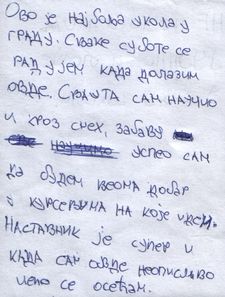 Ово је најбоља школа у
граду. Сваке суботе се
радујем када долазим
овде. Свашта сам научио
и кроз смех, забаву
успео сам
да будем веома добар
у курсевима на које идем.
Наставник је супер и
када сам овде неописиво
лепо се осећам.